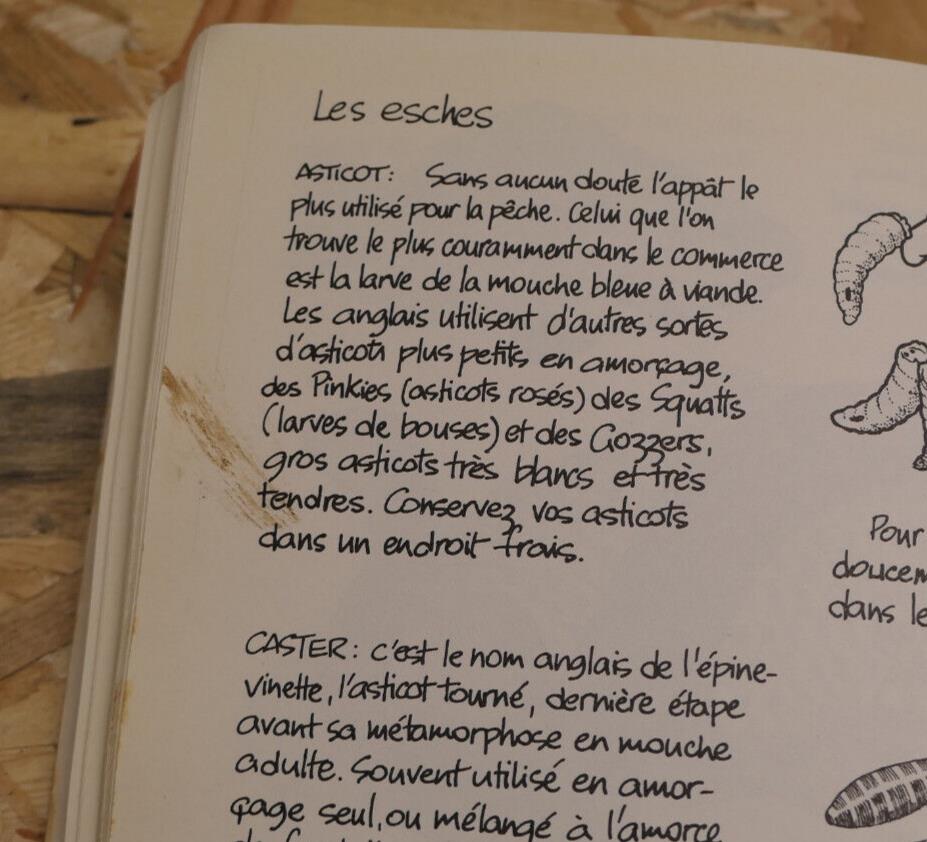 Les esches
ASTICOT: Sans aucun doute l'appât le
plus utilisé pour la pêche. Celui que l'on
trouve le plus couramment dans le commerce
est la larve de la mouche bleue à viande.
Les anglais utilisent d'autres sortes
d'asticots plus petits en amorçage,
des Pinkies (asticots rosés) des Squatts
(larves de bouses) et des Gozzers,
gros asticots très blancs et très
tendres. Conservez vos asticots
dans un endroit frais.
CASTER: c'est le nom anglais de l'épine-
vinette, l'asticot tourné, dernière étape
avant sa métamorphose en mouche
adulte. Souvent utilisé en amor-
çage seul, ou mélangé à l'amorce
Pour
doucem
dans le